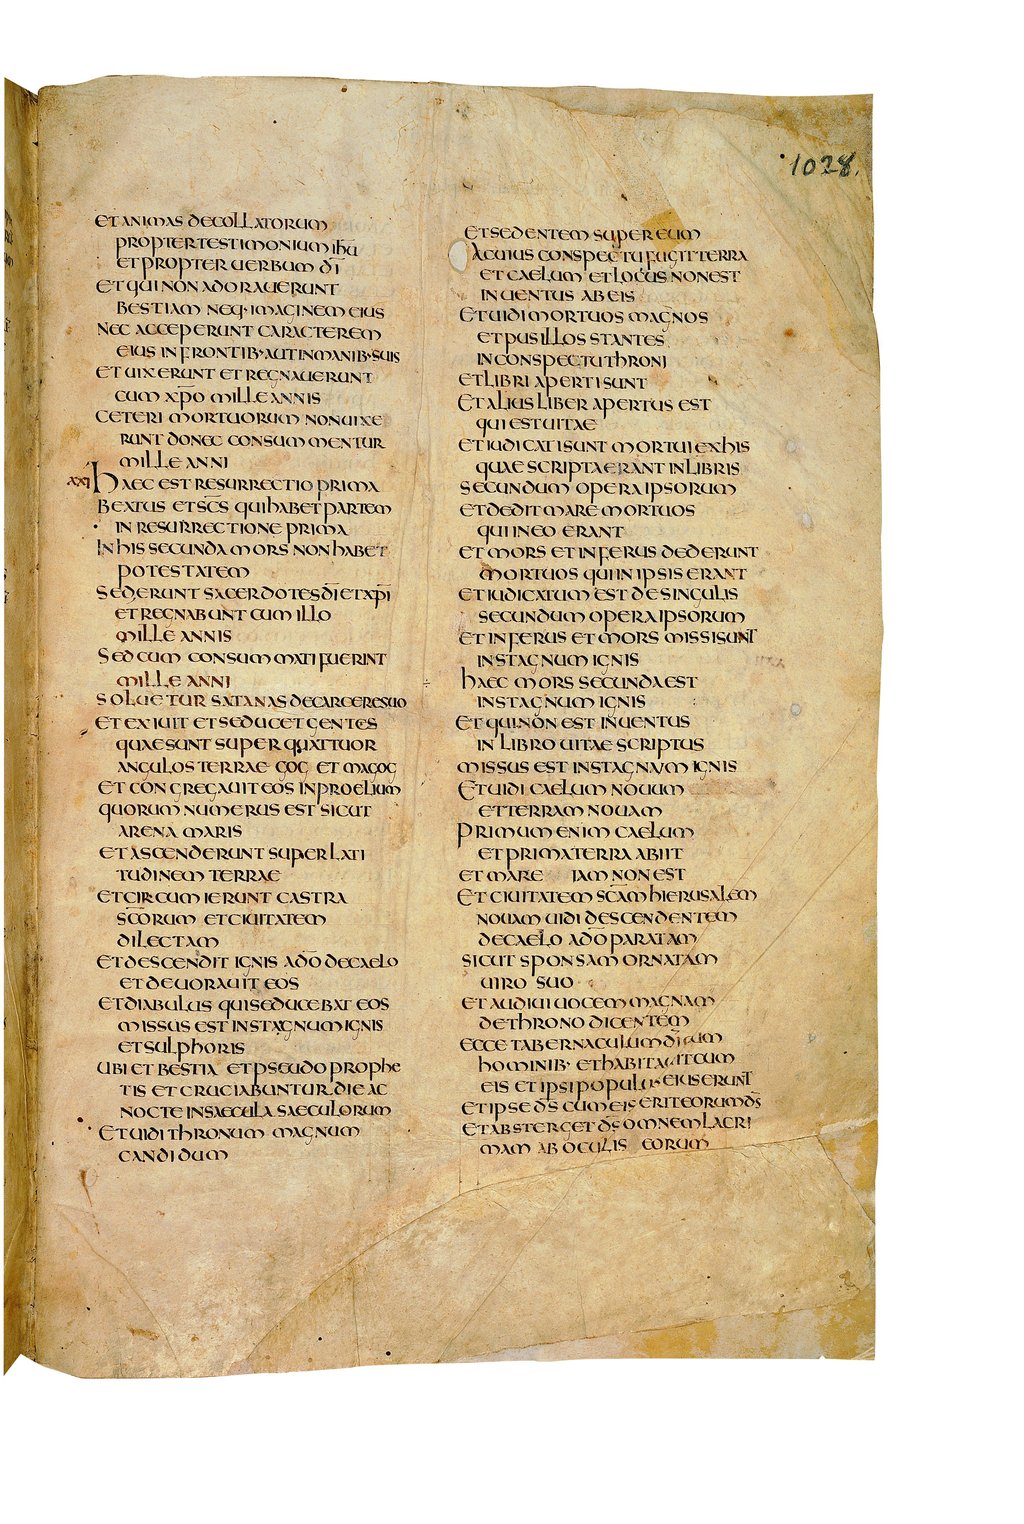 1028.
ET ANIMAS DECOLLATORUM
PROPTER TESTIMONIUM IHŪ
ET PROPTER UERBUM DĪ
ET QUI NON ADORAUERUNT
BESTIAM NEQ· IMAGINEM EIUS
NEC ACCEPERUNT CARACTEREM
EIUS IN FRONTIB· AUT IN MANIB· SUIS
ET UIXERUNT ET REGNAUERUNT
CUM XP̄O MILLE ANNIS
CETERI MORTUORUM NON UIXE
RUNT DONEC CONSUMMENTUR
MILLE ANNI
XXI HAEC EST RESURRECTIO PRIMA
BEATUS ET SC̄S QUI HABET PARTEM
IN RESURRECTIONE PRIMA
IN HIS SECUNDA MORS NON HABET
POTESTATEM
SED ERUNT SACERDOTES DĪ ET XP̄I
ET REGNABUNT CUM ILLO
MILLE ANNIS
SED CUM CONSUMMATI FUERINT
MILLE ANNI
SOLUETUR SATANAS DE CARCERE SUO
ET EXIUIT ET SEDUCET GENTES
QUAE SUNT SUPER QUATTUOR
ANGULOS TERRAE GOG ET MAGOG
ET CONGREGAUIT EOS IN PROELIUM
QUORUM NUMERUS EST SICUT
ARENA MARIS
ET ASCENDERUNT SUPER LATI
TUDINEM TERRAE
ET CIRCUMIERUNT CASTRA
SC̄ORUM ET CIUITATEM
DILECTAM
ET DESCENDIT IGNIS A DŌ DE CAELO
ET DEUORAUIT EOS
ET DIABULUS QUI SEDUCEBAT EOS
MISSUS EST IN STAGNUM IGNIS
ET SULPHORIS
UBI ET BESTIA ET PSEUDOPROPHE
TIS ET CRUCIABUNTUR DIE AC
NOCTE IN SAECULA SAECULORUM
ET UIDI THRONUM MAGNUM
CANDIDUM
ET SEDENTEM SUPER EUM
A CUIUS CONSPECTU FUGIT TERRA
ET CAELUM ET LOCUS NON EST
INUENTUS AB EIS
ET UIDI MORTUOS MAGNOS
ET PUSILLOS STANTES
IN CONSPECTU THRONI
ET LIBRI APERTI SUNT
ET ALIUS LIBER APERTUS EST
QUI EST UITAE
ET IUDICATI SUNT MORTUI EX HIS
QUAE SCRIPTA ERANT IN LIBRIS
SECUNDUM OPERA IPSORUM
ET DEDIT MARE MORTUOS
QUI IN EO ERANT
ET MORS ET INFERUS DEDERUNT
MORTUOS QUI IN IPSIS ERANT
ET IUDICATUM EST DE SINGULIS
SECUNDUM OPERA IPSORUM
ET INFERUS ET MORS MISSI SUNT
IN STAGNUM IGNIS
HAEC MORS SECUNDA EST
IN STAGNUM IGNIS
ET QUI NON EST INUENTUS
IN LIBRO UITAE SCRIPTUS
MISSUS EST IN STAGNUM IGNIS
ET UIDI CAELUM NOUUM
ET TERRAM NOUAM
PRIMUM ENIM CAELUM
ET PRIMA TERRA ABIIT
ET MARE IAM NON EST
ET CIUITATEM SC̄AM HIERUSALEM
NOUAM UIDI DESCENDENTEM
DE CAELO A DŌ PARATAM
SICUT SPONSAM ORNATAM
UIRO SUO
ET AUDIUI UOCEM MAGNAM
DE THRONO DICENTEM
ECCE TABERNACULUM DĪ CUM
HOMINIB· ET HABITAUIT CUM
EIS ET IPSI POPULUS EIUS ERUNT
ET IPSE DS̄ CUM EIS ERIT EORUM DS̄
ET ABSTERGET DS̄ OMNEM LACRI
MAM AB OCULIS EORUM